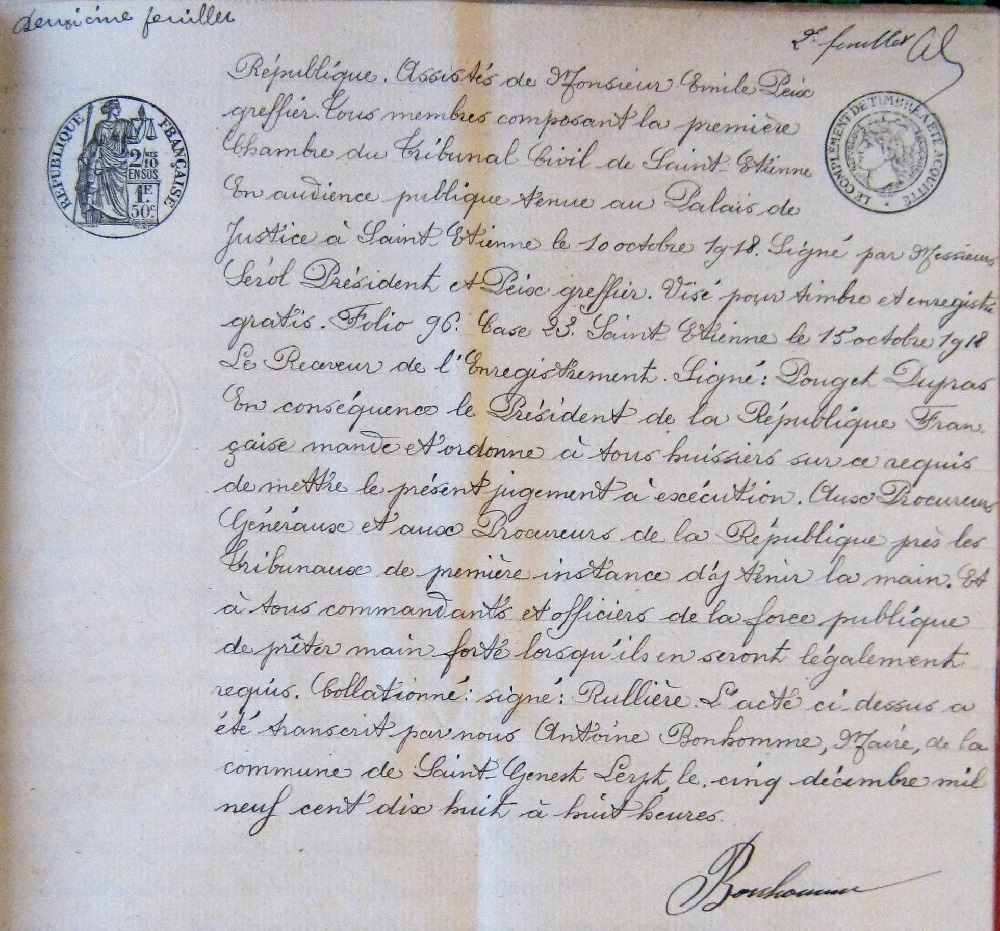 deuxième feuillet
2e feuillet
RÉPUBLIQUE FRANÇAISE
2/10
EN SUS
1F.
50c
LE COMPLEMENT DE TIMBRE A ETE ACQUITTE
République. Assistés de Monsieur Emile Peix
greffier. Tous membres composant la première
Chambre du Tribunal Civil de Saint-Etienne
En audience publique tenue au Palais de
Justice à Saint Etienne le 10 octobre 1918. Signé par Messieurs
Sérol Président et Peix greffier. Visé pour timbre et enregistré
gratis. Folio 96. Case 23. Saint-Etienne le 15 octobre 1918
Le Receveur de l'Enregistrement. Signé: Pouget Dupras
En conséquence le Président de la République Fran-
çaise mande et ordonne à tous huissiers sur ce requis
de mettre le présent jugement à exécution. Aux Procureurs
Généraux et aux Procureurs de la République près les
Tribunaux de première instance d'y tenir la main. Et
à tous commandants et officiers de la force publique
de prêter main forte lorsqu'ils en seront légalement
requis. Collationné: signé: Rullière. L'acte ci-dessus a
été transcrit par nous Antoine Bonhomme, Maire, de la
commune de Saint-Genest Lerpt, le, cinq décembre mil
neuf cent dix huit à huit heures.
Bonhomme